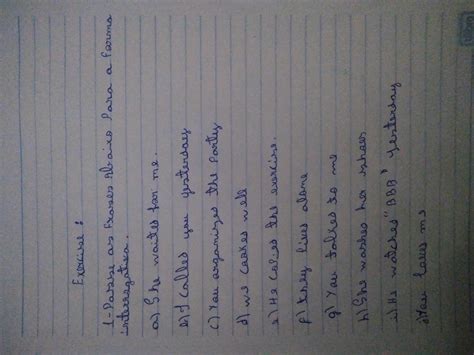 Exercise:
1- Passe as frases Abaixo Para a forma
interrogativa.
a) She waited for me.
b) I called you yesterday
c) You organized the Party
d) we cooked well
e) He copied the exercise.
f) they lived alone
g) You talked to me
h) She washed her shoes
i) He watched "BBB" yesterday
j) You loved me